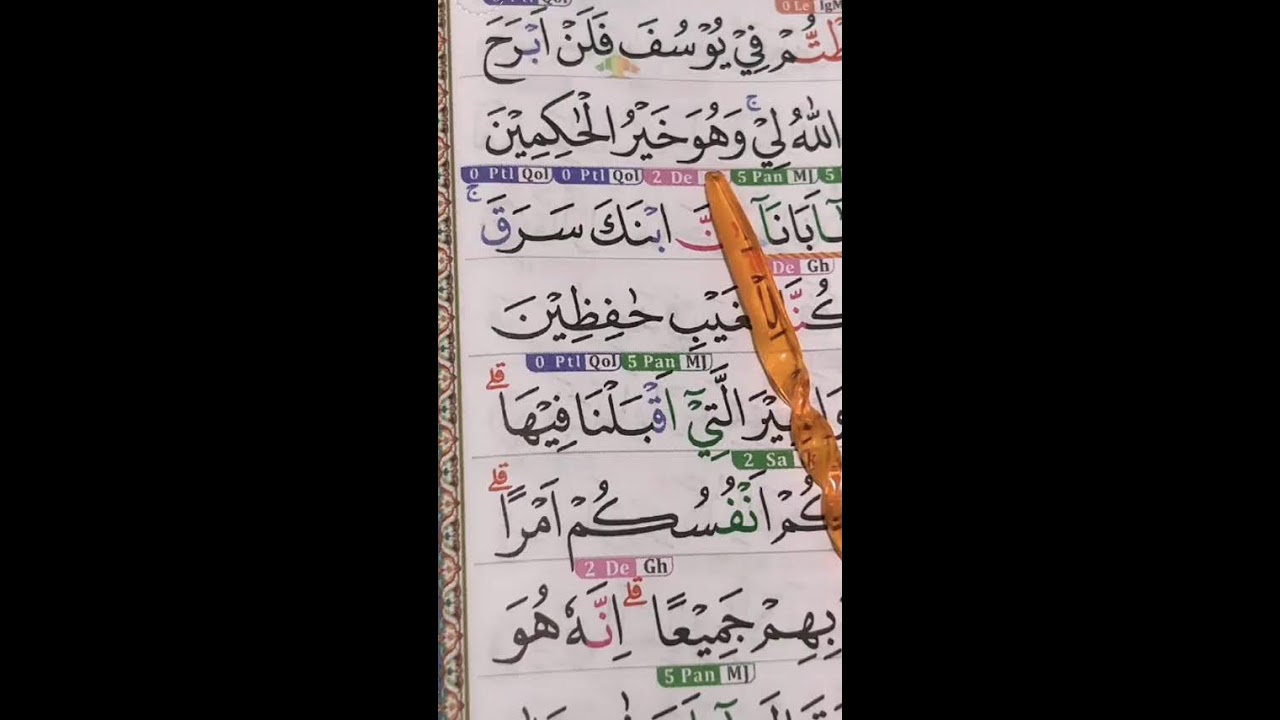 فِيْ يُوْسُفَ فَلَنْ اَبْرَحَ
اللّٰهُ لِيْ ۚ وَهُوَ خَيْرُ الْحٰكِمِيْنَ
0 Ptl Qol 0 Ptl Qol 2 De 5 Pan MJ 5
ابْنَكَ سَرَقَ ۚ
De Gh
حٰفِظِيْنَ
0 Ptl Qol 5 Pan MJ
الَّتِيْٓ اَقْبَلْنَا فِيْهَا ؕ
2 Sa
اَنْفُسُكُمْ اَمْرًا ؕ
2 De Gh
بِهِمْ جَمِيْعًا ؕ اِنَّهٗ هُوَ
5 Pan MJ